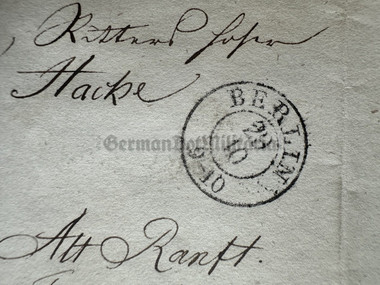 Ritters hofer
Hacke
BERLIN
28
10
9-10
GermanDotMilitaria
Alt Ranft.